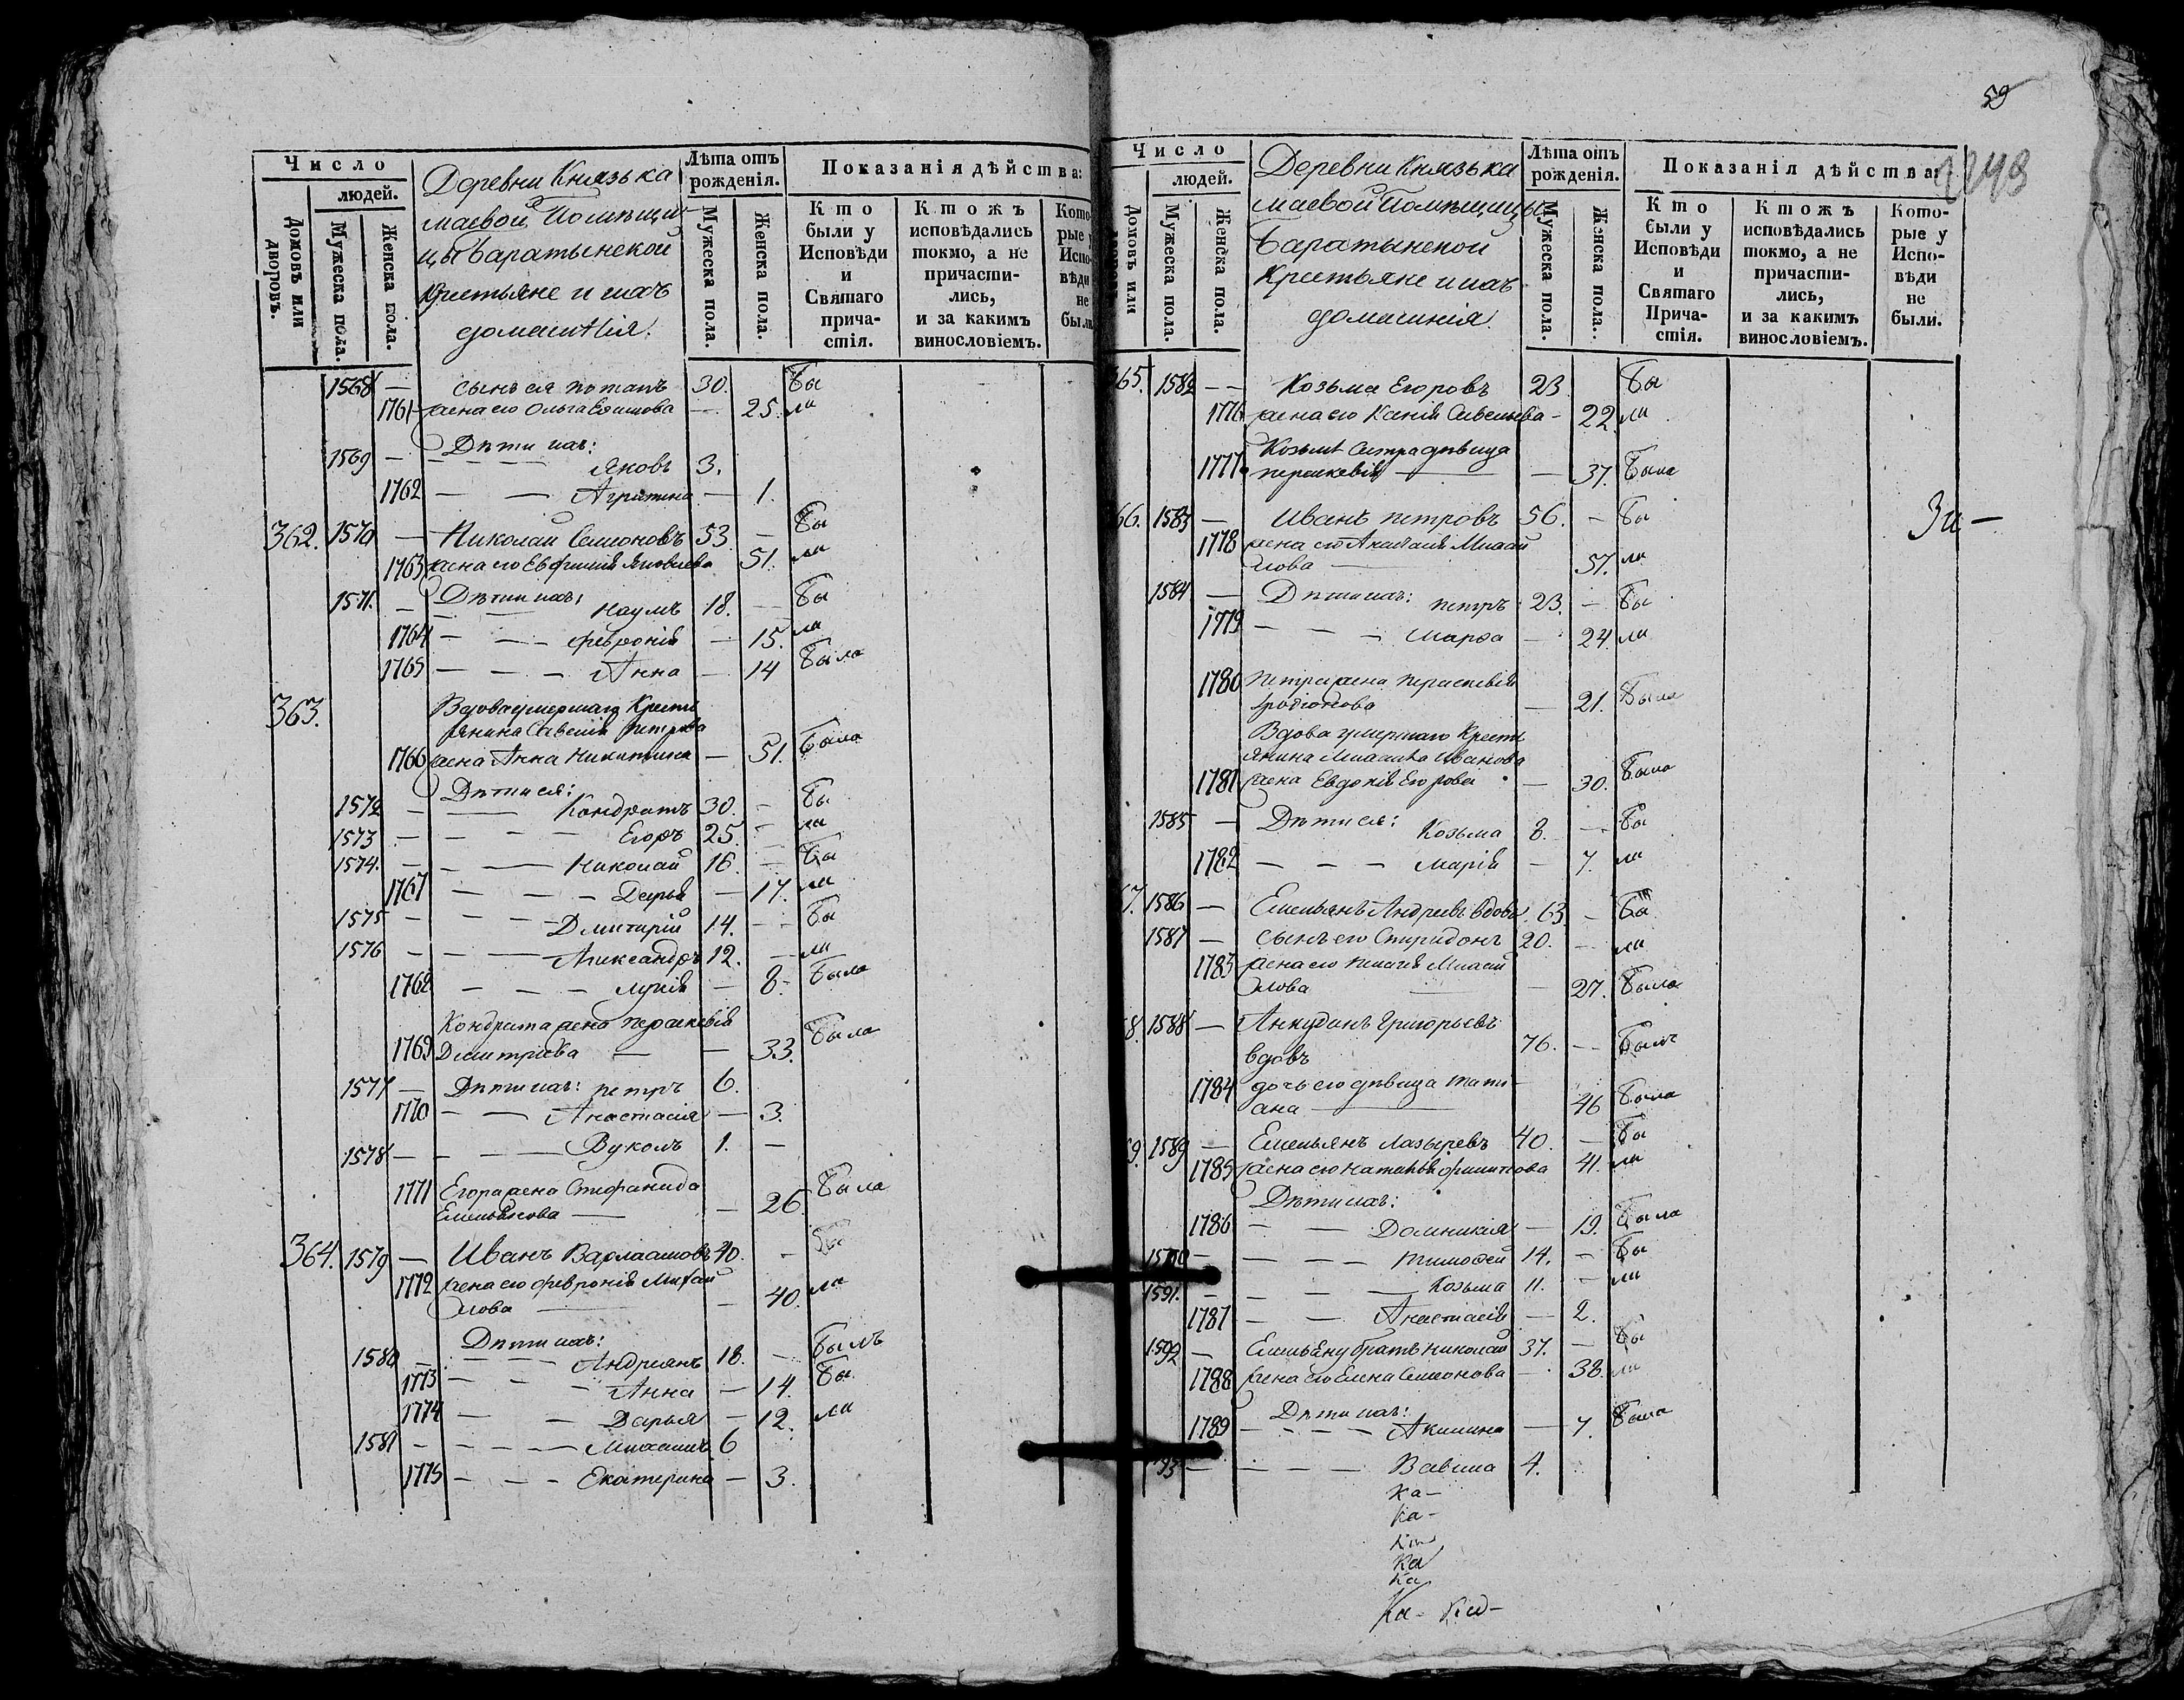 59
2248
Число
людей.
Домовъ или дворовъ.
Мужеска пола.
Женска пола.
Деревни Князька
маевой Помѣщи-
цы Баратынской
Крестьяне и ихъ
домашнія.
Лѣта отъ
рожденія.
Мужеска пола.
Женска пола.
Показанія дѣйства:
Кто
были у
Исповѣди
и
Святаго
прича-
стія.
Ктожъ
исповѣдались
токмо, а не
причасти-
лись,
и за какимъ
винословіемъ.
Кото-
рые у
Испо-
вѣди
не
были
1568 — сынъ ея Потапъ 30. Бы
1761 жена его Ольга — 25. ли
Дѣти ихъ:
1569 — Яковъ 3.
1762 — — Агрипина — 1.
362. 1570 — Николай Семеновъ 53. — Бы
1763 жена его Евфимія Яковлева 51. ли
Дѣти ихъ:
1571. — Наумъ 18. — Бы
1764 — — Февронія — 15. ли
1765 — — — Анна — 14 Была
363. Вдова умершаго Кресть
янина Савелія Петрова
1766 жена Анна Никитина — 51. Была
Дѣти ея:
1572 — — Кондратъ 30. — Бы
1573 — — — Егоръ 25. — ли
1574. — — Николай 16. — Бы
1767 — — — Дарья — 17. ли
1575 — — — Дмитрій 14. — Бы
1576 — — — Александръ 12. — ли
1768 — — — Марія — 8. Была
Кондрата жена Параскевія
1769 Дмитріева — — 33. Была
1577 — Дѣти ихъ: Петръ 6.
1770 — — Анастасія — 3.
1578 — — — Вуколъ 1. —
1771 Егора жена Стефанида
Емельянова — — 26. Была
364. 1579 — Иванъ Варлаамовъ 40. — Бы
1772 жена его Февронія Михай
лова — — 40. ли
Дѣти ихъ:
1580 — — — Андреянъ 18. — Былъ
1773 — — — Анна — 14. Бы
1774 — — Дарья — 12. ли
1581 — — — — Михаилъ 6
1775 — — — Екатерина — 3.
Число
людей.
Домовъ или
Мужеска пола.
Женска пола.
Деревни Князька
маевой Помѣщицы
Баратынской
Крестьяне и ихъ
домашнія.
Лѣта отъ
рожденія.
Мужеска пола.
Женска пола.
Показанія дѣйства:
Кто
были у
Исповѣди
и
Святаго
Прича-
стія.
Ктожъ
исповѣдались
токмо, а не
причасти-
лись,
и за какимъ
винословіемъ.
Кото-
рые у
Испо-
вѣди
не
были.
365. 1582 — — Козьма Егоровъ 23. Бы
1776 жена его Ксенія Савельева — 22. ли
Козьмы сестра дѣвица
1777 Параскевія — — 37. Была
66. 1583 — Иванъ Петровъ 56. — Бы
1778 жена его Анастасія Михай
лова — 57. ли
1584 — Дѣти ихъ: Петръ 23. — Бы
1779 — — — Марѳа — 24. ли
1780 Петра жена Параскевія
Родіонова — 21. Была
Вдова умершаго Кресть
янина Михаила Иванова
1781 жена Евдокія Егорова — 30. Была
1585 — Дѣти ея: Козьма 8. — Бы
1782 — — — Марія — 7. ли
7. 1586 — Емельянъ Андреевъ вдовъ 63 — Бы
1587 — сынъ его Спиридонъ 20. — ли
1783 жена его Михай
лова — 27. Была
8. 1588 — Анкудинъ Григорьевъ
вдовъ 76. — Былъ
1784 дочь его дѣвица Тати-
ана — 46 Была
9. 1589 — Емельянъ Лазаревъ 40. — Бы
1785 жена его Наталья Филипова 41. ли
Дѣти ихъ:
1786 — — Домникія — 19. Была
1590 — — — — Тимоѳей 14. — Бы
1591. — — — — Козьма 11. — ли
1787 — — Анастасія — 2.
1592 — Емельяну братъ Николай 37. — Бы
1788 жена его Елена Семенова — 38. ли
Дѣти ихъ:
1789 — — — — Акилина — 7. Была
93 — — — — Вавила 4.
Ка-
Ка-
Ка
Ка
Ка-